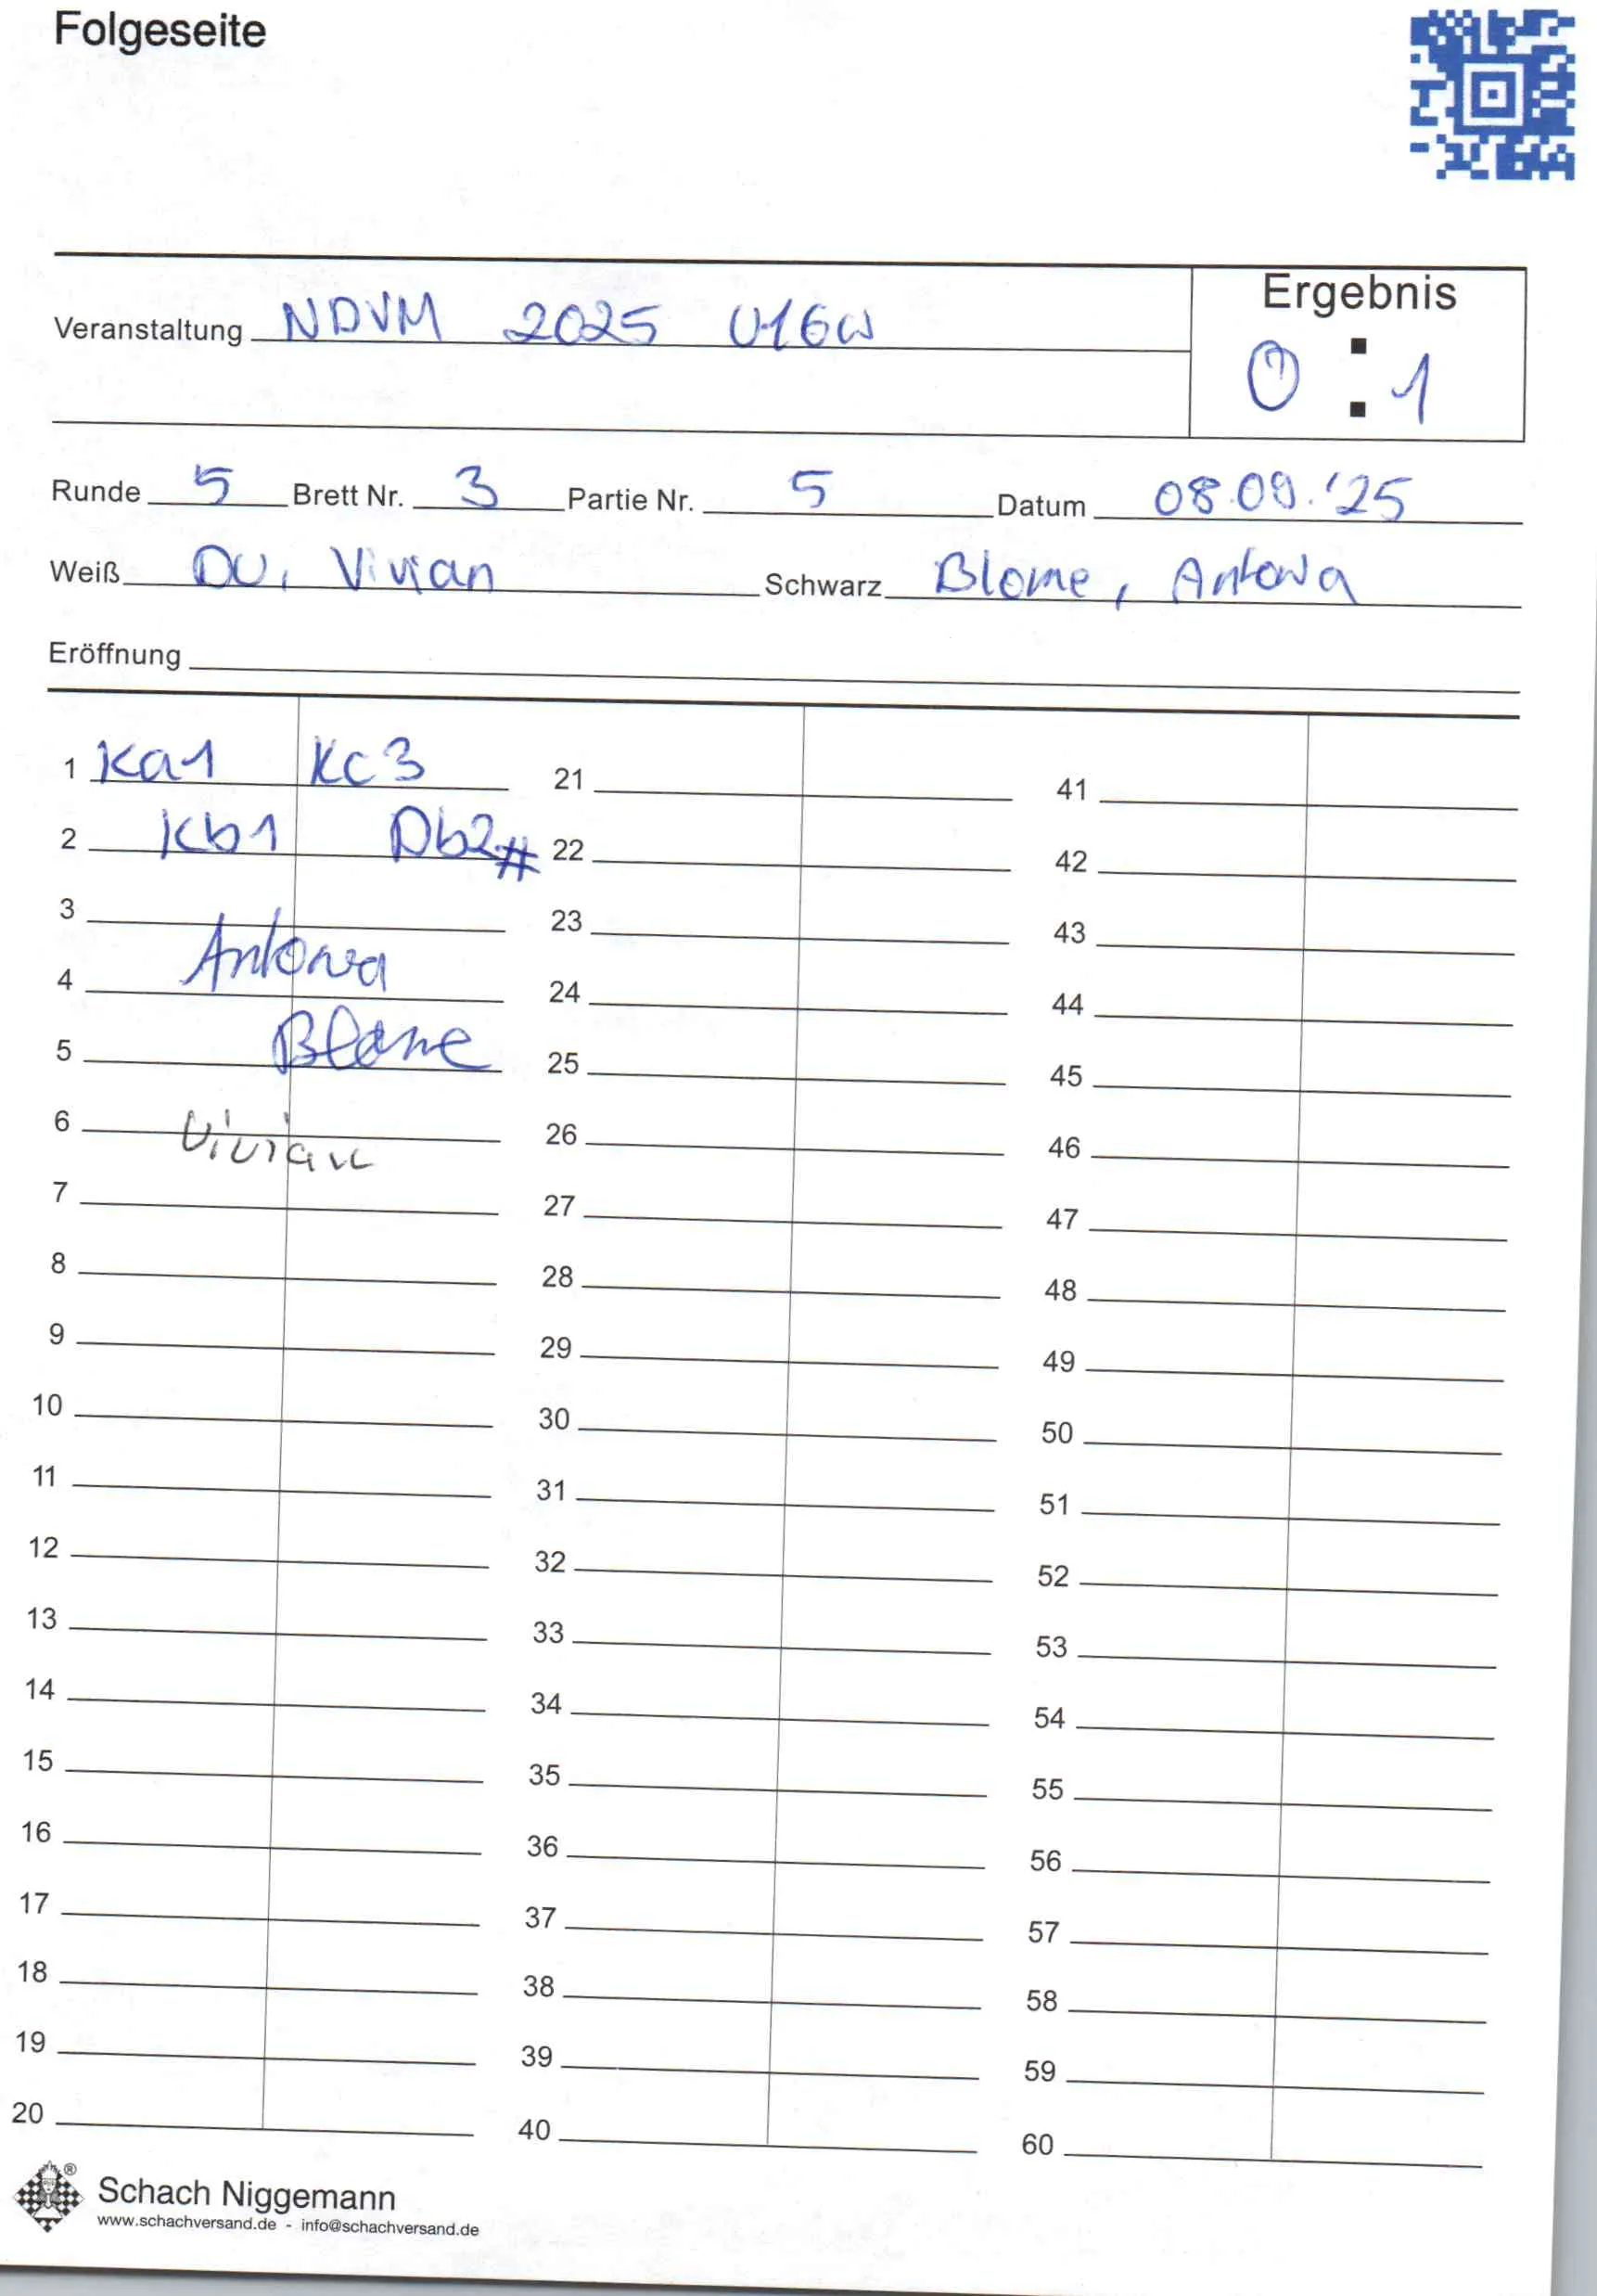 Folgeseite
Veranstaltung NDVM 2025 U16w
Ergebnis
0 : 1
Runde 5 Brett Nr. 3 Partie Nr. 5 Datum 08.09.'25
Weiß DU, Vivian Schwarz Blome, Antonia
Eröffnung
1 Ka1 Kc3 21 41
2 Kb1 Db2# 22 42
3 23 43
Antonia
4 24 44
Blome
5 25 45
6 Vivian 26 46
7 27 47
8 28 48
9 29 49
10 30 50
11 31 51
12 32 52
13 33 53
14 34 54
15 35 55
16 36 56
17 37 57
18 38 58
19 39 59
20 40 60
® Schach Niggemann
www.schachversand.de - info@schachversand.de